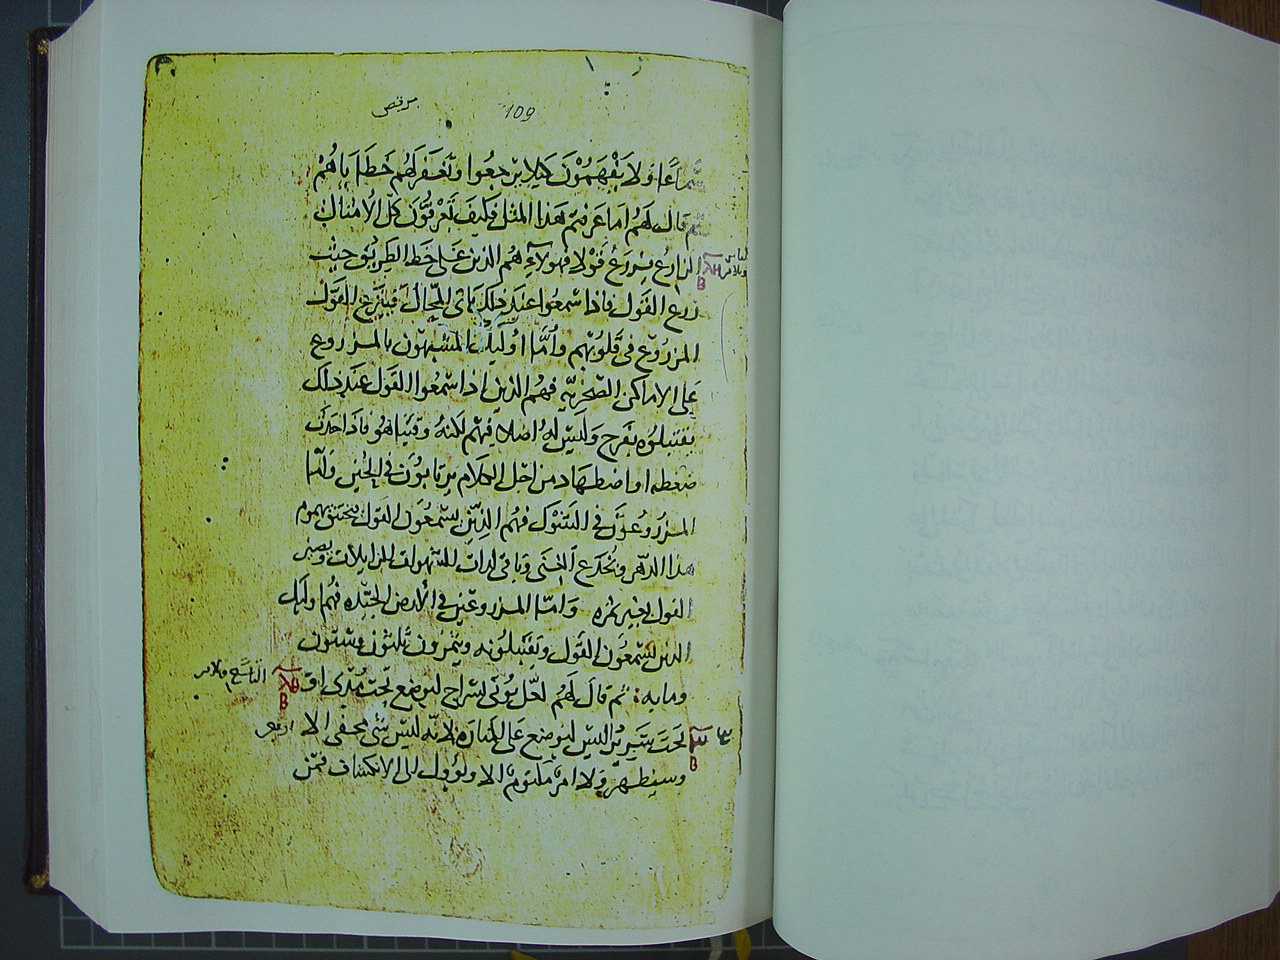 مرقص 109
سماعًا ولا يفهمون كيلا يرجعوا وتغفر لهم خطاياهم
ثم قال لهم اما عرفتم هذا المثل فكيف تعرفون كل الامثال
الزارع يزرع قولا فهولاء هم الذين على خط الطريق حيث
زرع القول فاذا سمعوا عند ذلك ياتى المحال فينزع القول
المزروع فى قلوبهم وأمّا اوليك المشبهون بالمزروع
على الاماكن الصخريّه فهم الذين اذا سمعوا القول عند ذلك
يقتبلوه بفرح وليس له اصلا فيهم لكنه وقتيا هو فاذا حدث
ضغطه او اضطهاد من اجل الكلام يرتابون في الحين وأمّا
المزروعون فى الشوك فهم الذين يسمعون القول يختنق بهموم
هذا الدهر وخدع الغنى وباقى لذات للشهوات الزايلات ويصير
القول بغير ثمره وامّا المزروعين في الأرض الجيّده فهم اوليك
الذين يسمعون القول ويقتبلونه ويثمرون ثلثون وستون
ومايه: ثم قال لهم لعل يوتى بسراج ليوضع تحت مدى او
تحت سرير اليس ليوضع على المناره لانّه ليس شى مخفى الا
وسيظهر ولا امر مكتوم الا ويؤول الى الانكشاف فمن